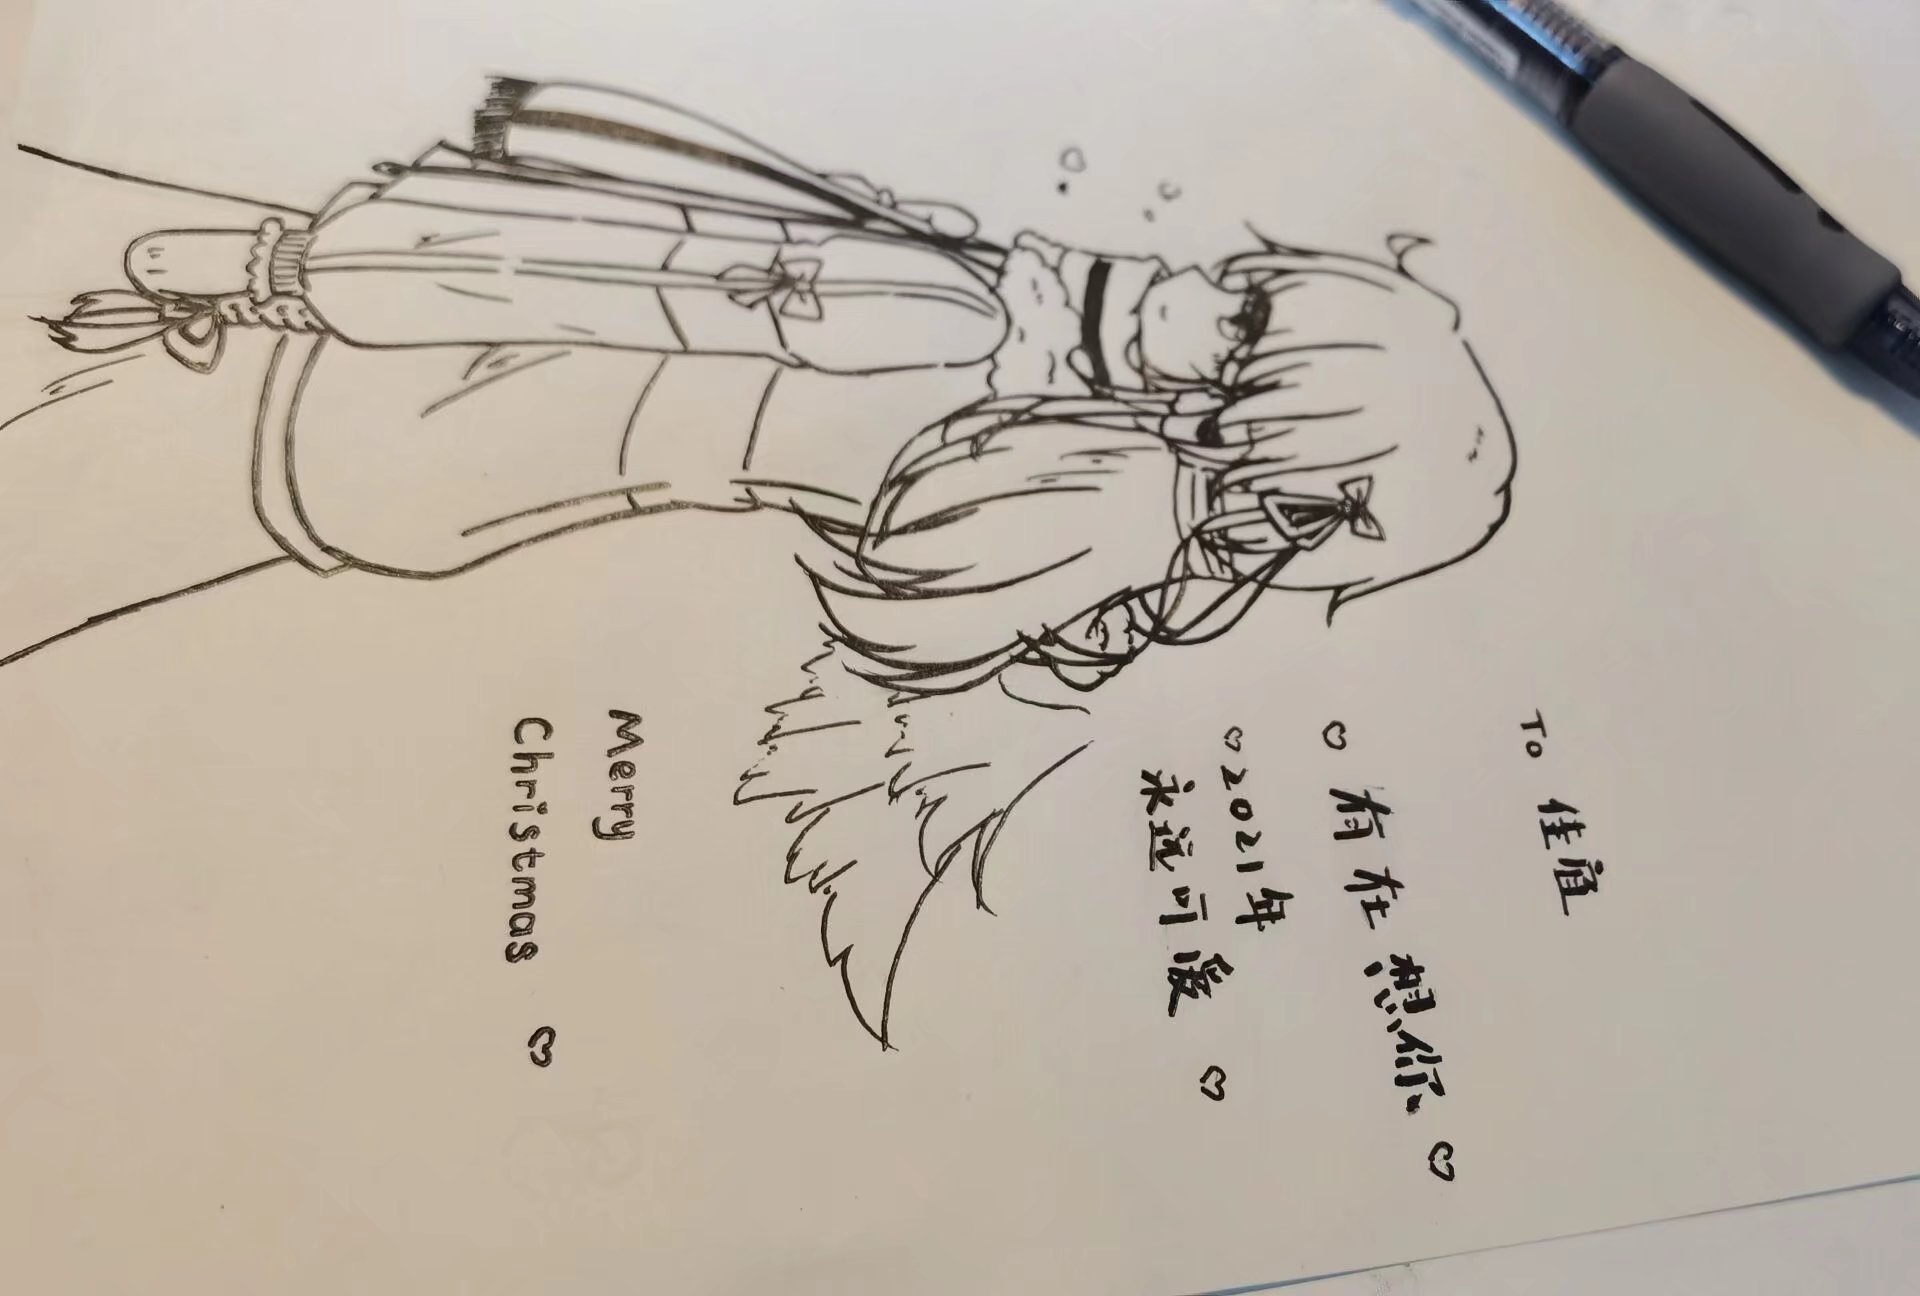 To 佳眉
♡ 有在想你 ♡
♡ 2021年
永远可爱 ♡
Merry
Christmas ♡